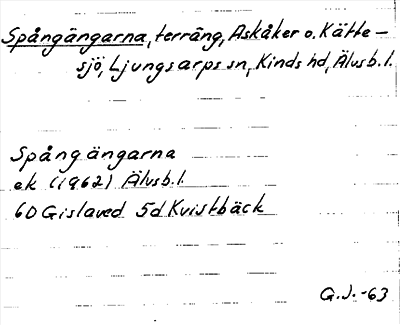 Spångängarna, terräng, Askåker o. Kätte-
sjö, Ljungsarps sn, Kinds hd, Älvsb. l.
Spångängarna
ek (1962) Älvsb. l.
6D Gislaved 5d Kvistbäck
G.J.-63